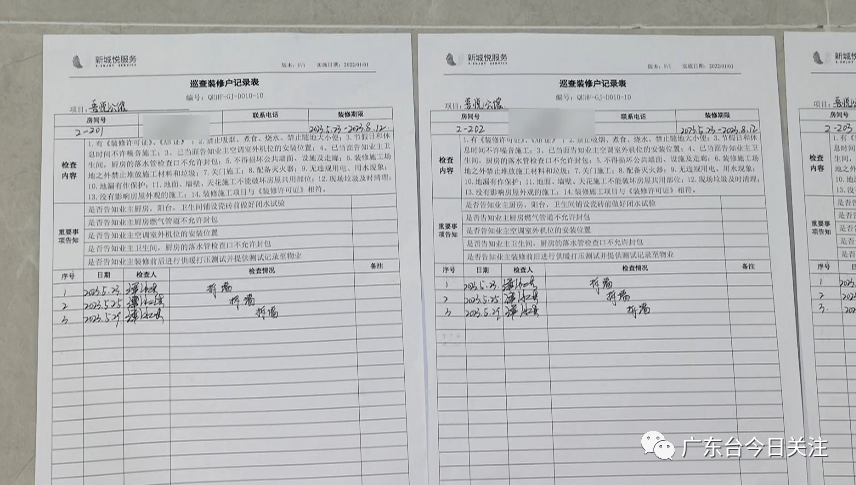 新城悦服务
版本:F/1 实施日期:2022/01/01
巡查装修户记录表
编号:QEHF-GJ-D010-10
项目:吾悦公馆
房间号 联系电话 装修期限
2-201 2023.5.23-2023.8.12
检查内容
1.有《装修许可证》、
2.禁止吸烟、煮食、烧水、禁止随地大小便;3.节假日和休
息时间不许噪音施工;3、已当面告知业主空调室外机位的安装位置;4、业主卫
生间、厨房的落水管检查口不允许封包;5.不得损坏公共墙面、设施及走廊;6.装修施工场
地之外禁止堆放施工材料和垃圾;7.关门施工;8.配备灭火器;9.无违规用电、用水现象;
10.地漏有作保护;11.地面、墙壁、天花施工不能破坏房屋共用部位;12.现场垃圾及时清理;
13.没有影响房屋外观的施工;14.装修施工项目与《装修许可证》相符。
重要事项告知
是否告知业主厨房、阳台、卫生间铺设瓷砖前做好闭水试验
是否告知业主厨房燃气管道不允许封包
是否告知业主空调室外机位的安装位置
是否告知业主卫生间、厨房的落水管检查口不允许封包
是否告知业主装修前后进行供暖打压测试并提供测试记录至物业
序号 日期 检查人 检查情况 备注
1 2023.5.23 拆墙
2 2023.5.25 拆墙
3 2023.5.29 拆墙
新城悦服务
版本:F/1 实施日期:2022/01/01
巡查装修户记录表
编号:QEHF-GJ-D010-10
项目:吾悦公馆
房间号 联系电话 装修期限
2-202 2023.5.23-2023.8.12
检查内容
1.有《装修许可证》、
2.禁止吸烟、煮食、烧水、禁止随地大小便;3.节假日和休
息时间不许噪音施工;3、已当面告知业主空调室外机位的安装位置;4、已当面告知业主卫
生间、厨房的落水管检查口不允许封包;5.不得损坏公共墙面、设施及走廊;6.装修施工场
地之外禁止堆放施工材料和垃圾;7.关门施工;8.配备灭火器;9.无违规用电、用水现象;
10.地漏有作保护;11.地面、墙壁、天花施工不能破坏房屋共用部位;12.现场垃圾及时清理;
13.没有影响房屋外观的施工;14.装修施工项目与《装修许可证》相符。
重要事项告知
是否告知业主厨房、阳台、卫生间铺设瓷砖前做好闭水试验
是否告知业主厨房燃气管道不允许封包
是否告知业主空调室外机位的安装位置
是否告知业主卫生间、厨房的落水管检查口不允许封包
是否告知业主装修前后进行供暖打压测试并提供测试记录至物业
序号 日期 检查人 检查情况 备注
1 2023.5.23 拆墙
2 2023.5.25 拆墙
3 2023.5.29 拆墙
项目:
房间号
2-203
检查内容
重要事项告知
序号
1 2023
2 2023
3. 202
广东台今日关注